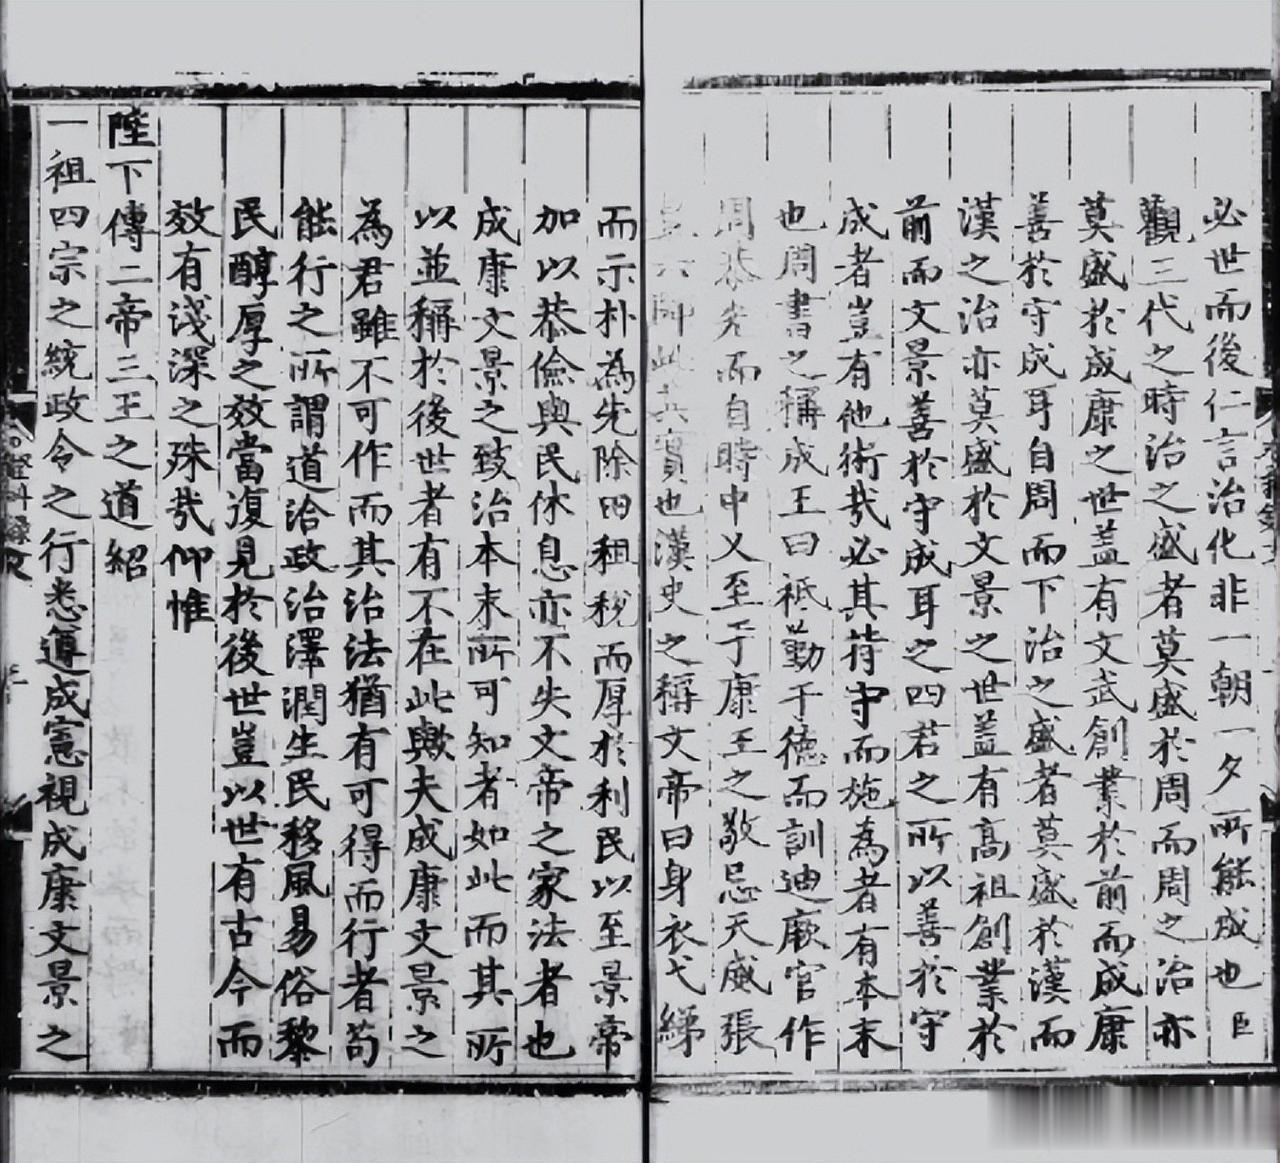 必世而後仁言治化非一朝一夕所能成也臣
觀三代之時治之盛者莫盛於周而周之治亦
莫盛於成康之世蓋有文武創業於前而成康
善於守成耳自周而下治之盛者莫盛於漢而
漢之治亦莫盛於文景之世蓋有高祖創業於
前而文景善於守成耳之四君之所以善於守
成者豈有他術哉必其持守而施為者有本末
也周書之稱成王曰祗勤于德而訓迪厥官作
周恭先而自時中乂至于康王之敬忌天威張
六師此其實也漢史之稱文帝曰身衣弋綈
而示朴為先除田租稅而厚於利民以至景帝
加以恭儉與民休息亦不失文帝之家法者也
成康文景之致治本末所可知者如此而其所
以並稱於後世者有不在此歟夫成康文景之
為君雖不可作而其治法猶有可得而行者苟
能行之所謂道洽政治澤潤生民移風易俗黎
民醇厚之效當復見於後世豈以世有古今而
效有淺深之殊哉仰惟
陛下傳二帝三王之道紹
一祖四宗之統政令之行悉遵成憲視成康文景之
登科錄